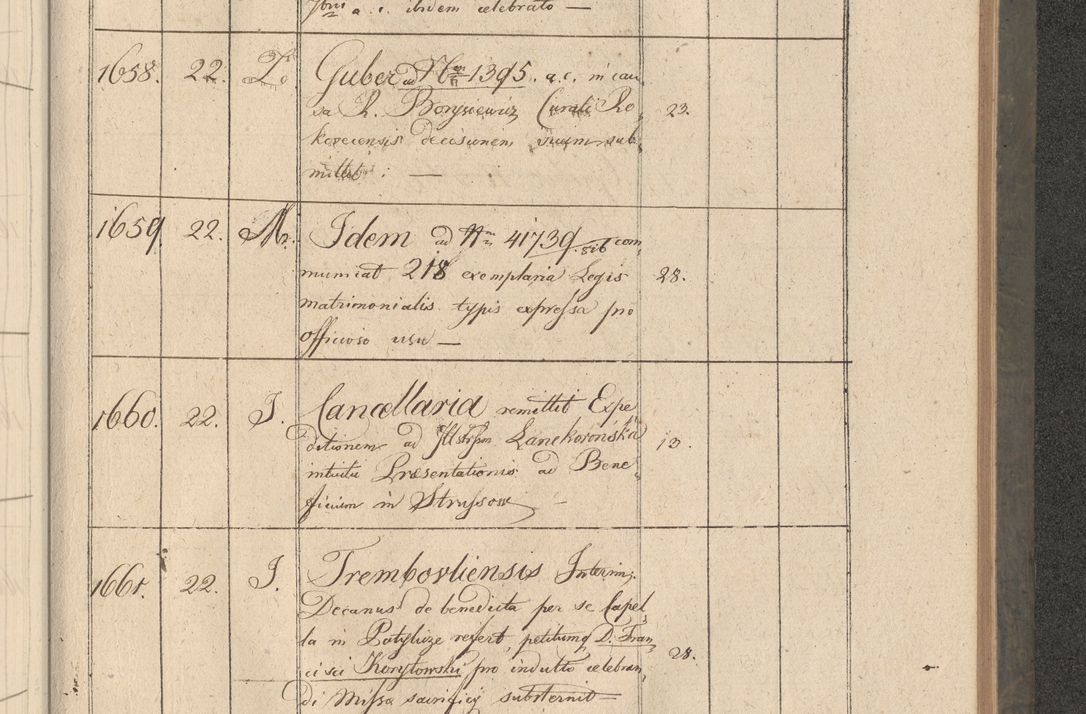 a. c. ibidem celebrato —
1658. 22. Guber. ad Nrm 1395. a. c. in cau
sa R. Borysiewicz Curati Ro
decisionem suam sub
mittit : —
1659. 22. M. Idem ad Nrm 41739. sib com
municat 218 exemplaria Legis 28.
matrimonialis typis expressa pro
officioso usu —
1660. 22. J. Cancellaria remittit Expe
ditionem ad Illstrssm Lanckoronska 13.
intuitu Præsentationis ad Bene
ficium in Strussow —
1661. 22. J. Trembovliensis Interim.
Decanus de benedicta per se Capel
la in refert, petitumq D. Fran
cisci Korytowski pro indulto celebran 28.
di Missa sacrificij substernit —